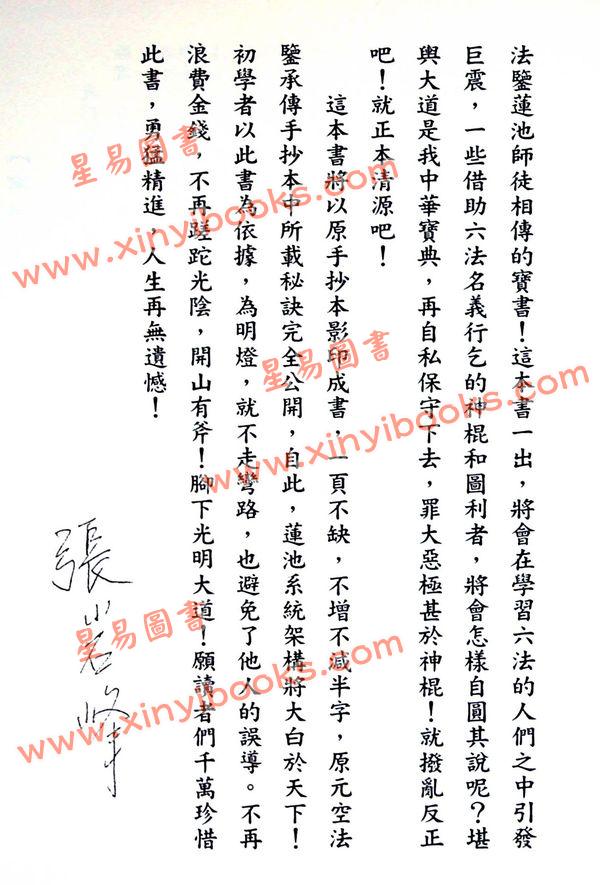 法鑒蓮池師徒相傳的寶書！這本書一出，將會在學習六法的人們之中引發
巨震，一些借助六法名義行乞的神棍和圖利者，將會怎樣自圓其說呢？堪
輿大道是我中華寶典，再自私保守下去，罪大惡極甚於神棍！就撥亂反正
吧！就正本清源吧！
這本書將以原手抄本影印成書，一頁不缺，不增不減半字，原元空法
鑒承傳手抄本中所載秘訣完全公開，自此，蓮池系統架構將大白於天下！
初學者以此書為依據，為明燈，就不走彎路，也避免了他人的誤導。不再
浪費金錢，不再蹉跎光陰，開山有斧！腳下光明大道！願讀者們千萬珍惜
此書，勇猛精進，人生再無遺憾！
張岩峰
星易圖書
www.xinyibooks.com
星易圖書
www.xinyibooks.com
星易圖書
www.xinyibooks.com